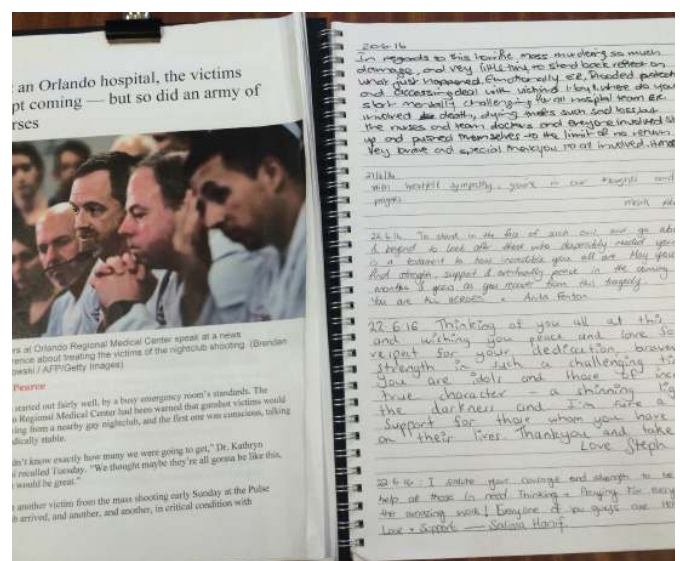 an Orlando hospital, the victims
pt coming — but so did an army of
rses
rs at Orlando Regional Medical Center speak at a news
rence about treating the victims of the nightclub shooting. (Brendan
owski / AFP/Getty Images)
Pearce
started out fairly well, by a busy emergency room's standards. The
o Regional Medical Center had been warned that gunshot victims would
ving from a nearby gay nightclub, and the first one was conscious, talking
dically stable.
dn't know exactly how many we were going to get," Dr. Kathryn
i recalled Tuesday. "We thought maybe they're all gonna be like this,
would be great."
another victim from the mass shooting early Sunday at the Pulse
b arrived, and another, and another, in critical condition with
20.6.16
In regards to this horrific mass murdering so much
damage, and very little time to stand back reflect on
what just happened. Emotionally E.R, flooded
and deal with victims 1 by 1, where do you
start mentally challenging for all hospital team E.R.
involved death, dying there's such sad loss, but
the nurses and team doctors and everyone involved
up and pushed themselves to the limit of no return.
Very brave and special thankyou to all involved.
21/6/16
With heartfelt sympathy, you're in our thoughts and
prayers
22.6.16 To stand in the face of such evil, and go abo
& beyond to look after those who desperately needed you
is a testament to how incredible you all are. May you
find strength, support & eventually peace in the coming
months & years as you recover from this tragedy.
You are ALL HEROES. Anita
22.6.16 Thinking of you all at this
and wishing you peace and love fo
respect for your dedication, braver
strength in such a challenging ti
You are idols and those of inc
true character - a shinning lig
the darkness and I'm sure a
support for those whom you have
on their lives. Thankyou and take
Love Steph
22.6.16: I salute your courage and strength to
help all those in need. Thinking + Praying for every
the amazing work! Everyone of you guys are
Love + Support — Salma Hanif